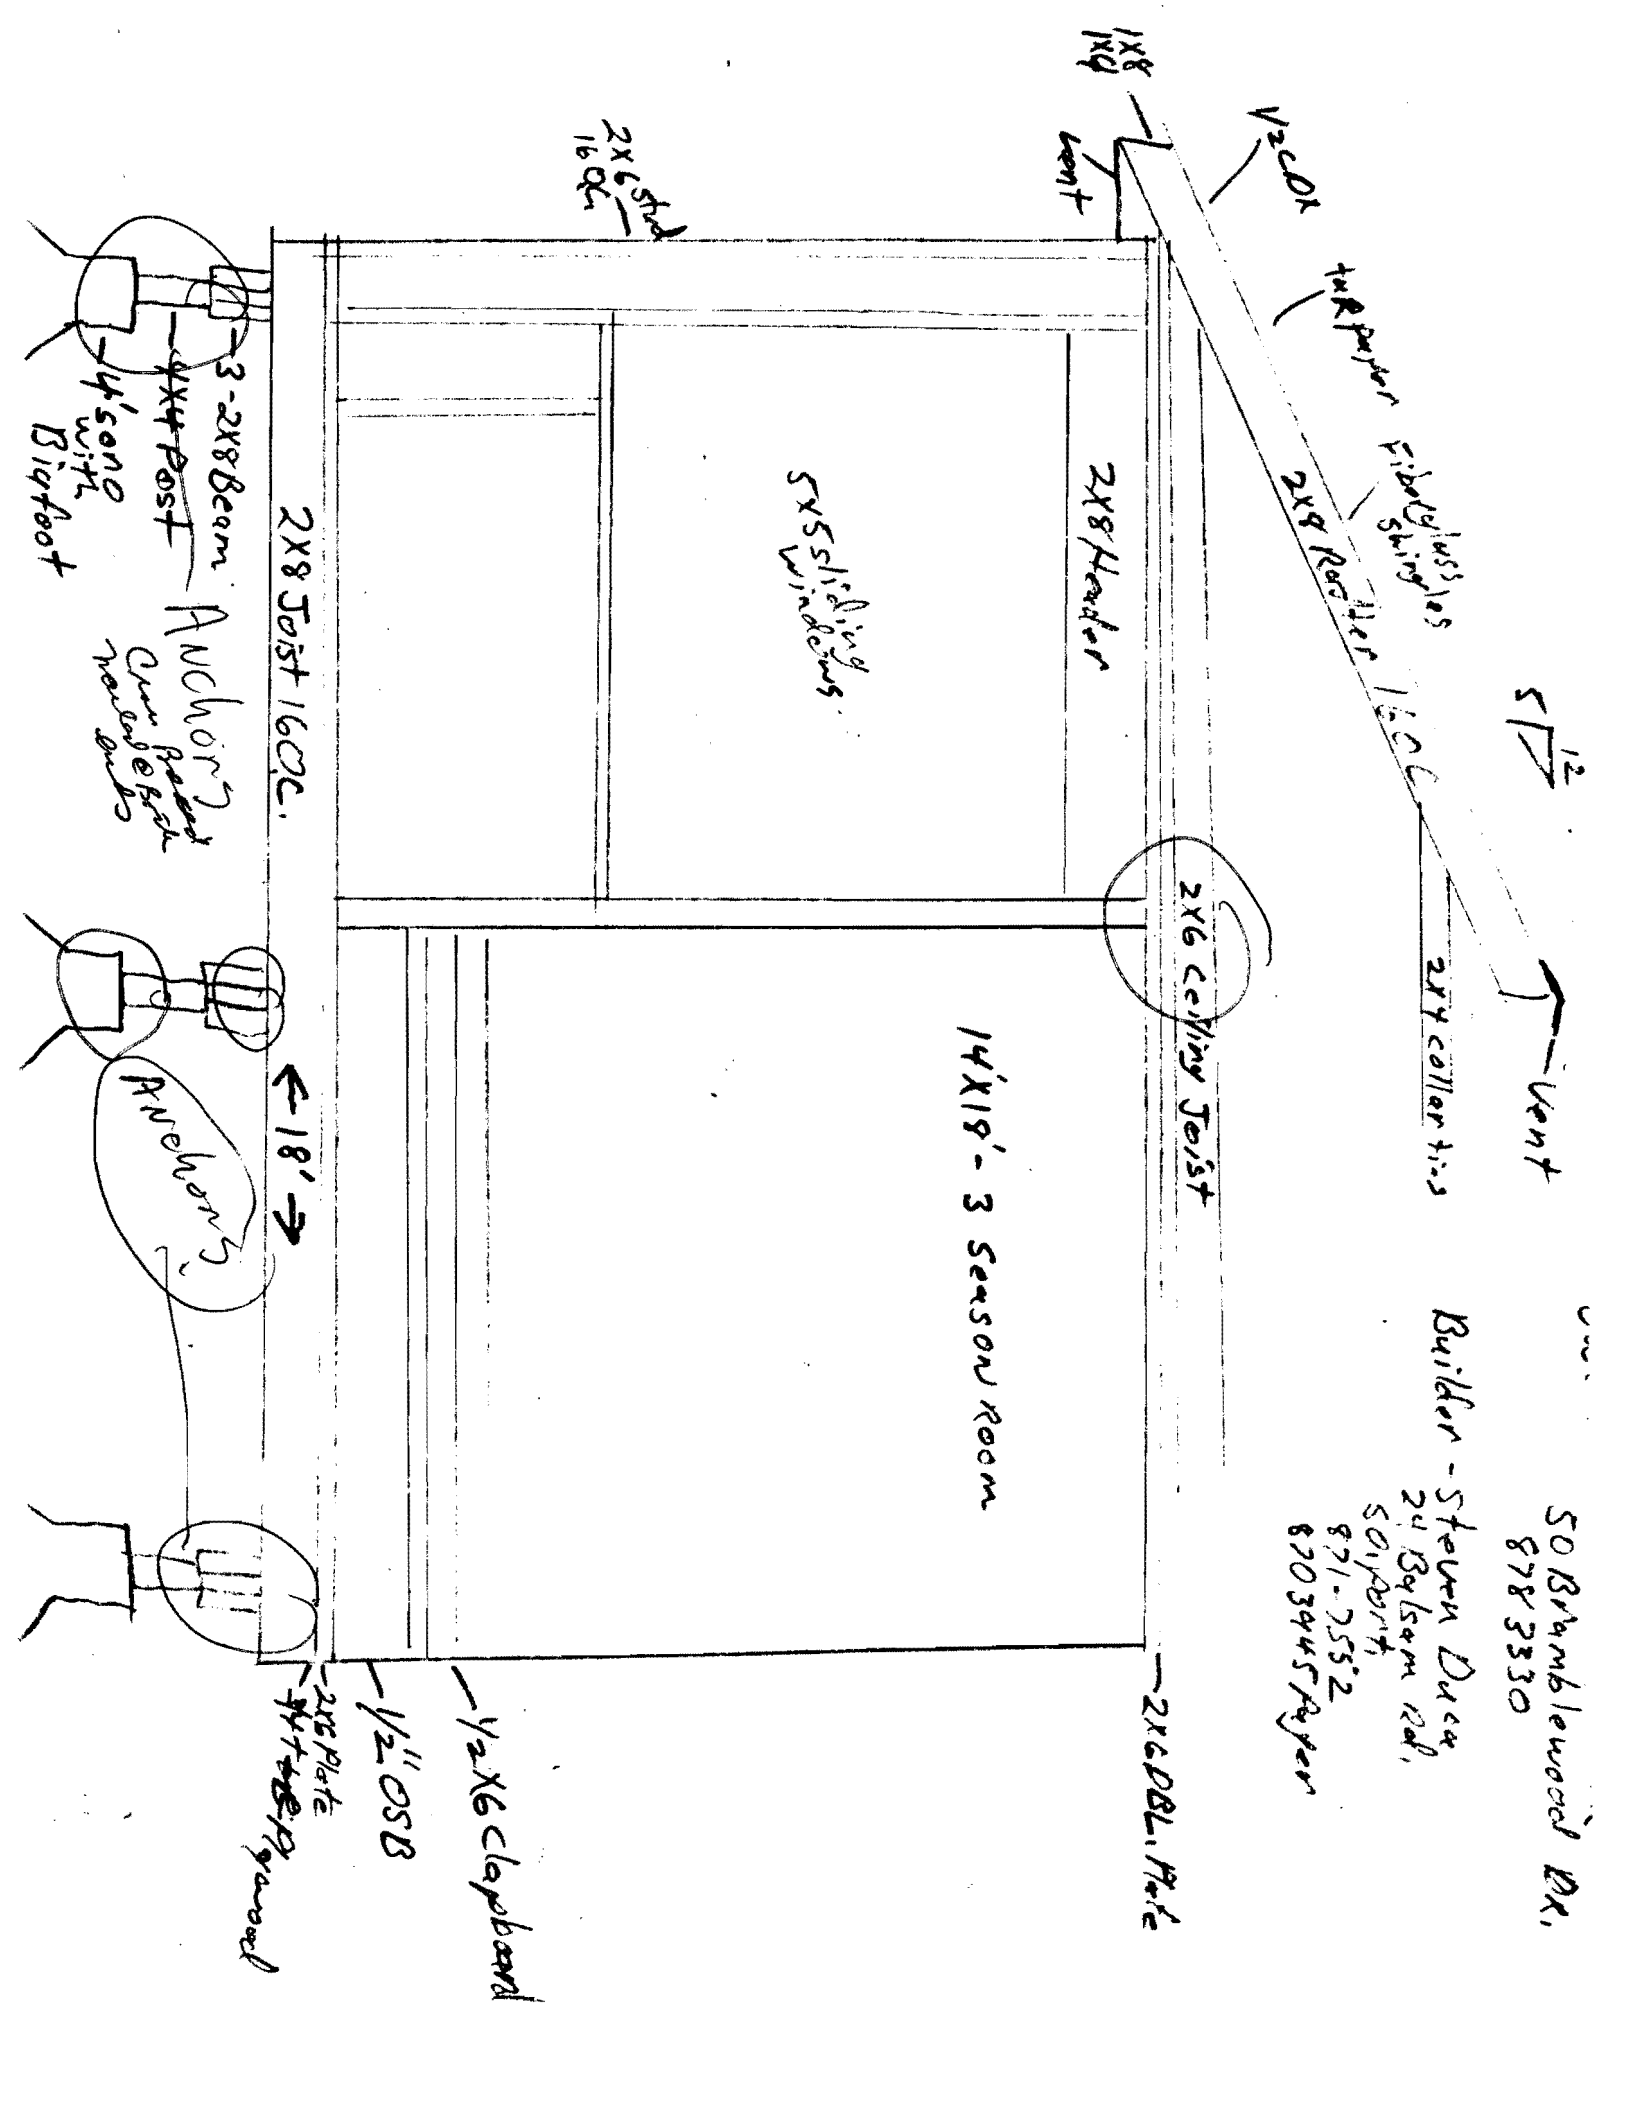 50 Bramblewood DR.
878 3330
Builder - Steven Duca
24 Balsam Rd.
So. port,
871-7552
870 3945 Pager
5
12
Vent
1x8
1x4
1/2 CDX
tar paper
Fiberglass
shingles
2x8 Rafter 16 OC
2x4 collar ties
Vent
2x6 Ceiling Joist
2x6 DBL. Plate
2x8 Header
2x6 Stud
16 OC
5x5 sliding
windows.
14'x18' - 3 Season Room
1/2 x 6 Clapboard
1/2" OSB
2x6 Plate
Plywood
2x8 Joist 16 OC.
← 18' →
3 - 2x8 Beam
4x4 Post
4' sono
with
Bigfoot
ANchor?
ANchor?